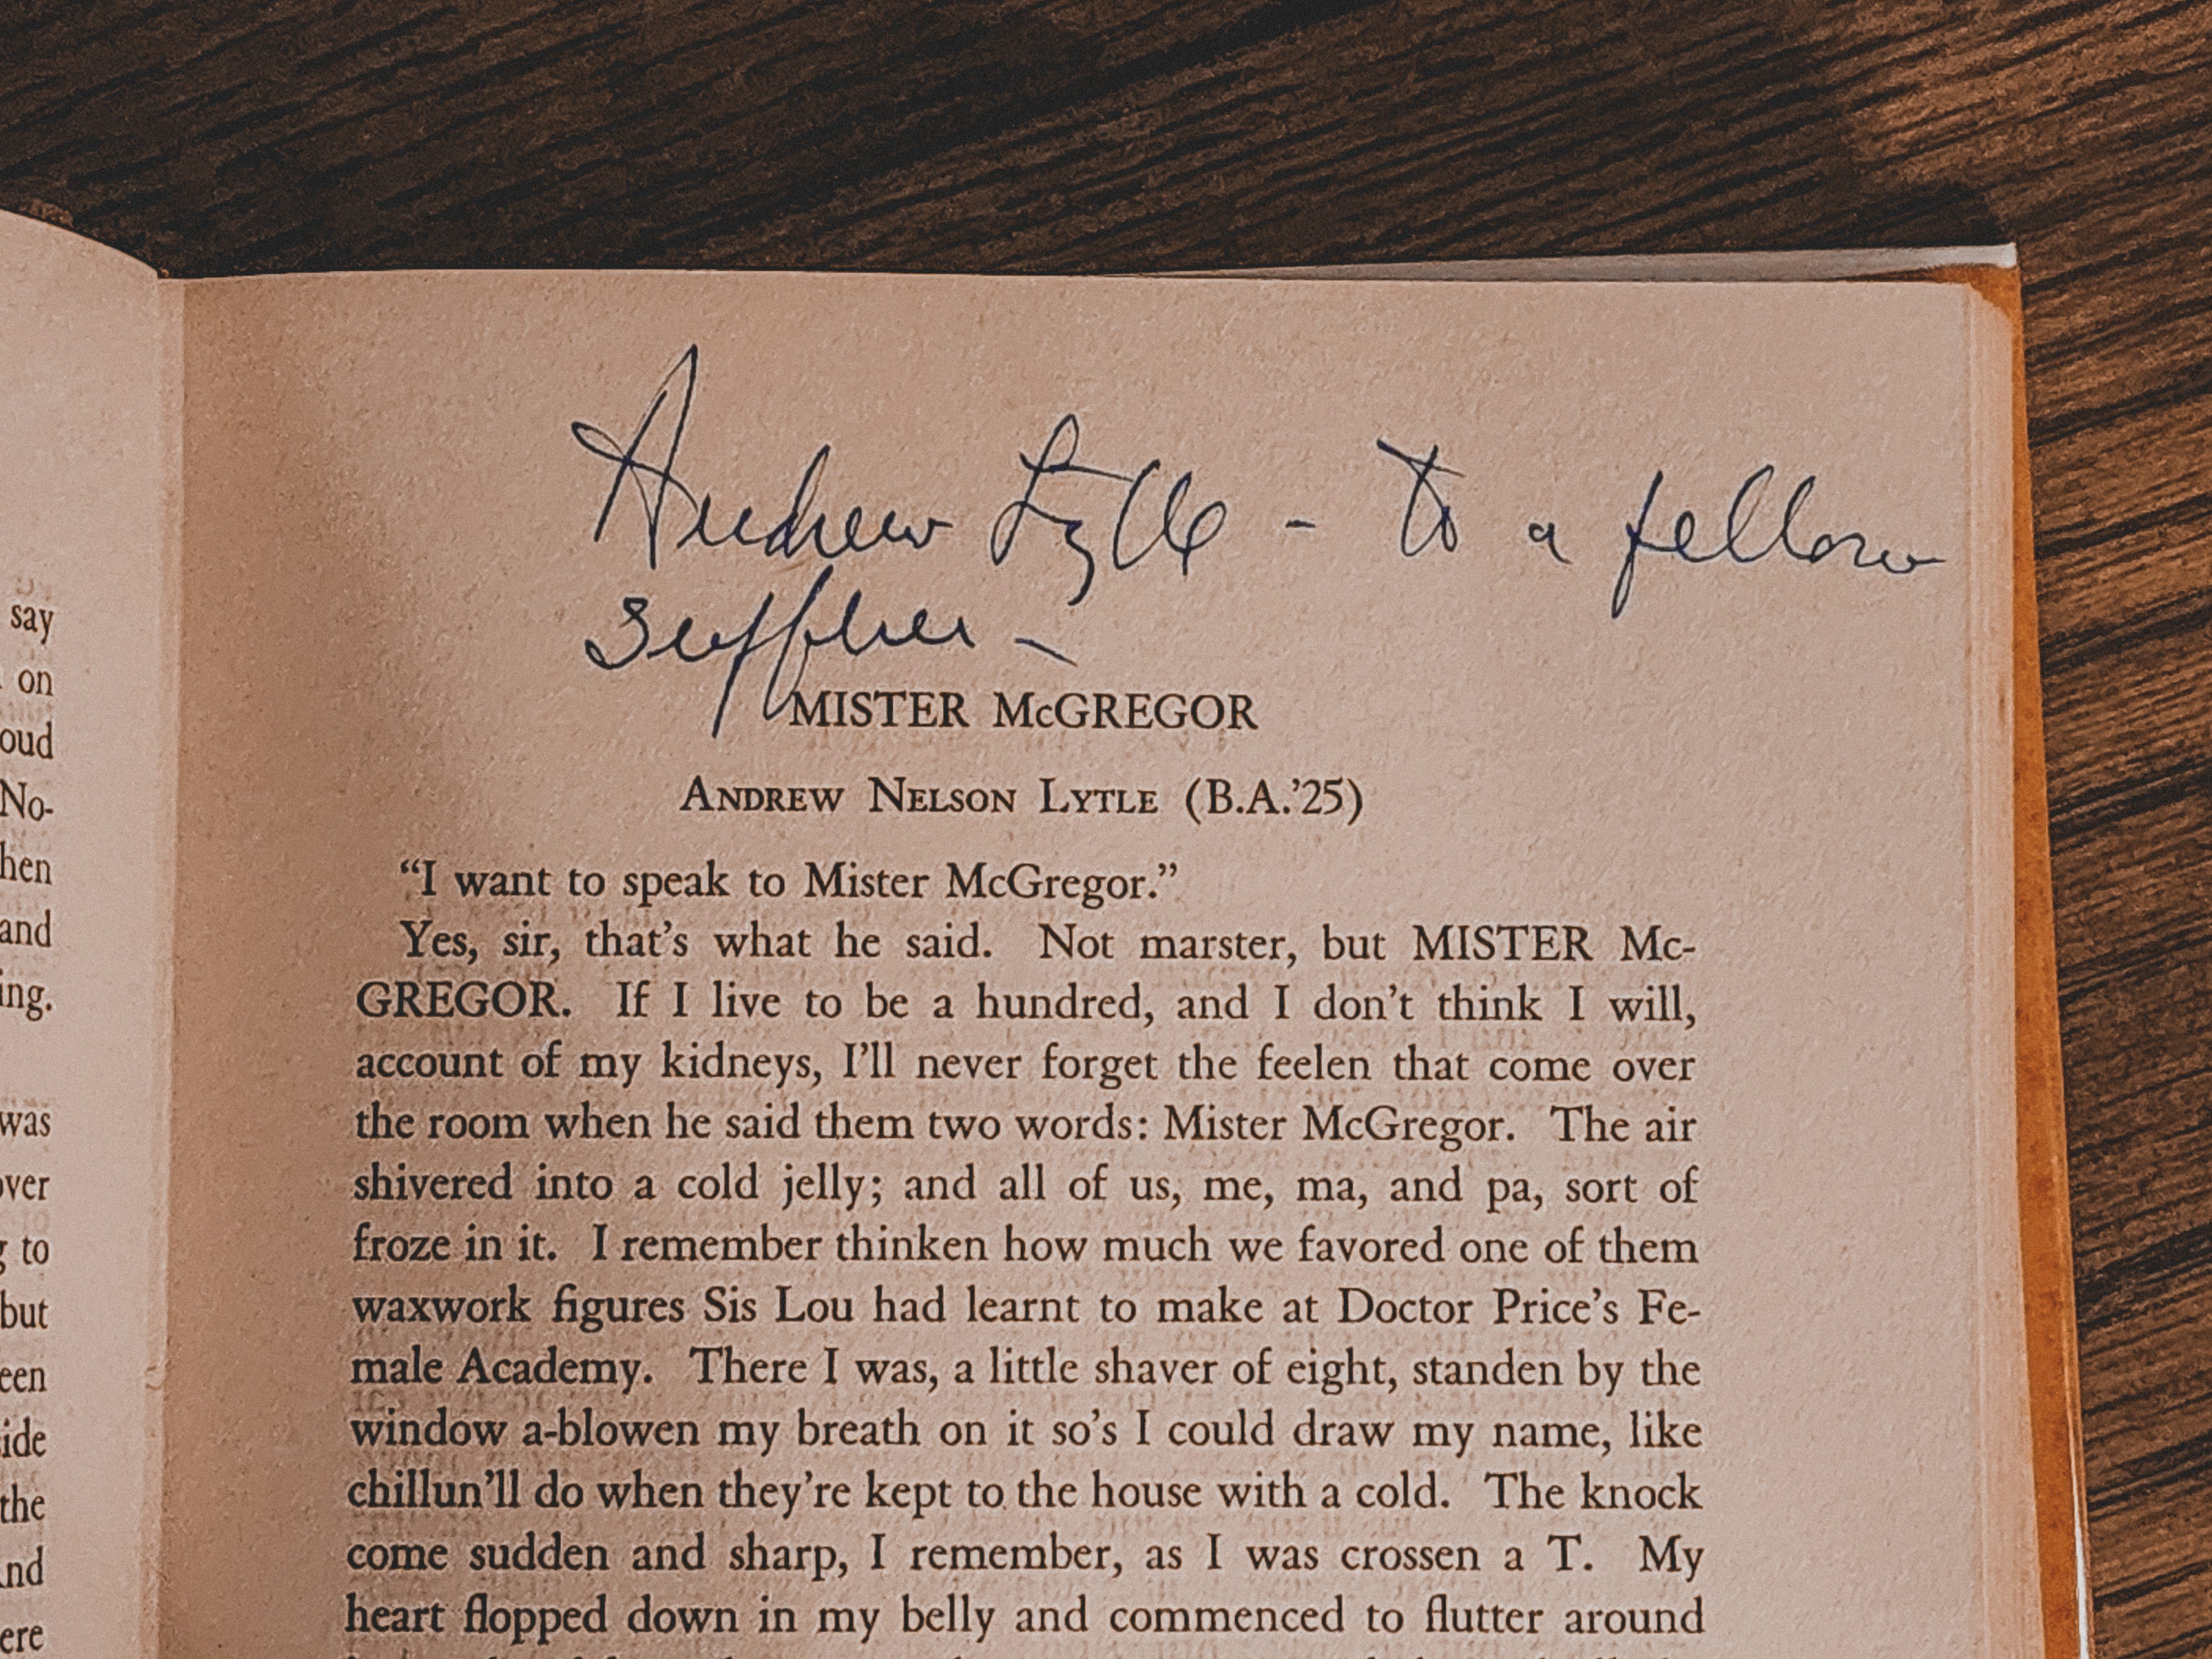 say
on
oud
No-
hen
and
ing.
was
over
to
but
een
ide
the
nd
ere
Andrew Lytle - to a fellow
sufferer -
MISTER McGREGOR
ANDREW NELSON LYTLE (B.A.'25)
“I want to speak to Mister McGregor.”
Yes, sir, that's what he said. Not marster, but MISTER Mc-
GREGOR. If I live to be a hundred, and I don't think I will,
account of my kidneys, I'll never forget the feelen that come over
the room when he said them two words: Mister McGregor. The air
shivered into a cold jelly; and all of us, me, ma, and pa, sort of
froze in it. I remember thinken how much we favored one of them
waxwork figures Sis Lou had learnt to make at Doctor Price's Fe-
male Academy. There I was, a little shaver of eight, standen by the
window a-blowen my breath on it so's I could draw my name, like
chillun'll do when they're kept to the house with a cold. The knock
come sudden and sharp, I remember, as I was crossen a T. My
heart flopped down in my belly and commenced to flutter around